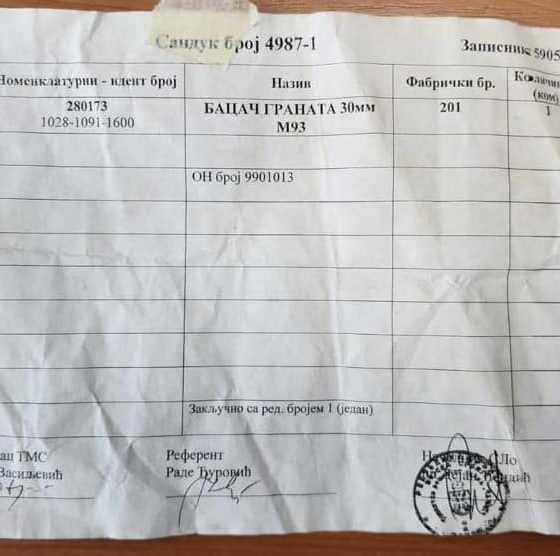 Сандук број 4987-1
Записник 5905
Номенклатурни - идент број
Назив
Фабрички бр.
(ком)
280173
1028-1091-1600
БАЦАЧ ГРАНАТА 30мм
М93
201
1
ОН број 9901013
Закључно са ред. бројем 1 (један)
ТМС
Засиљевић
Референт
Раде Ђуровић